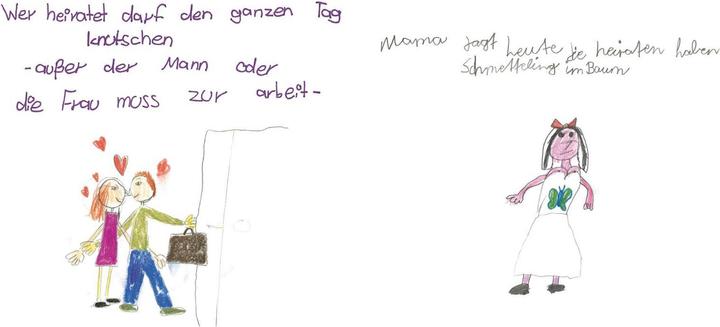 Wer heiratet darf den ganzen Tag
knutschen
-außer der Mann oder
die Frau muss zur arbeit-
Mama sagt heute die heiraten haben
Schmetteling im Baum